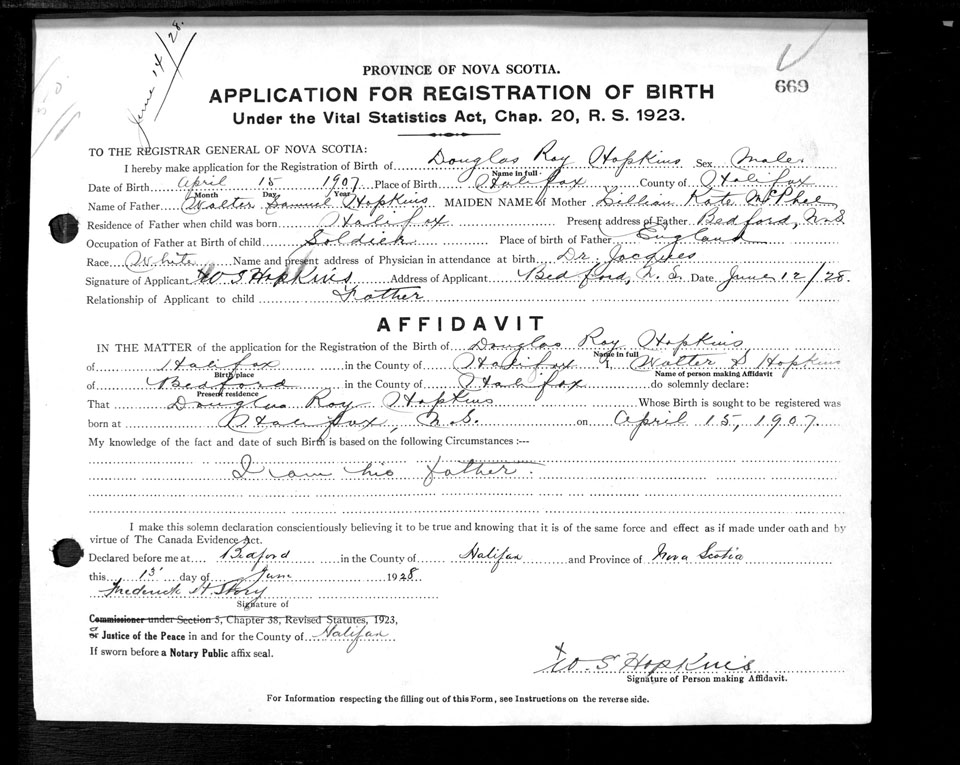 June 14/28.
669
PROVINCE OF NOVA SCOTIA.
APPLICATION FOR REGISTRATION OF BIRTH
Under the Vital Statistics Act, Chap. 20, R. S. 1923.
TO THE REGISTRAR GENERAL OF NOVA SCOTIA:
I hereby make application for the Registration of Birth of Douglas Roy Hopkins Sex Male
Name in full
Date of Birth April 15 1907 Place of Birth Halifax County of Halifax
Month Day Year
Name of Father Walter Samuel Hopkins MAIDEN NAME of Mother Lillian Kate McPhee
Residence of Father when child was born Halifax Present address of Father Bedford, N.S.
Occupation of Father at Birth of child Soldier Place of birth of Father England
Race White Name and present address of Physician in attendance at birth Dr. Jacques
Signature of Applicant W S Hopkins Address of Applicant Bedford, N. S. Date June 12/28.
Relationship of Applicant to child Father
AFFIDAVIT
IN THE MATTER of the application for the Registration of the Birth of Douglas Roy Hopkins
Name in full
of Halifax in the County of Halifax I, Walter S Hopkins
Birth place Name of person making Affidavit
of Bedford in the County of Halifax do solemnly declare:
Present residence
That Douglas Roy Hopkins Whose Birth is sought to be registered was
born at Halifax, N.S. on April 15, 1907.
My knowledge of the fact and date of such Birth is based on the following Circumstances :---
I am his father.
I make this solemn declaration conscientiously believing it to be true and knowing that it is of the same force and effect as if made under oath and by
virtue of The Canada Evidence Act.
Declared before me at Bedford in the County of Halifax and Province of Nova Scotia
this 13 day of June 1928
Frederick H Story
Signature of
Commissioner under Section 5, Chapter 38, Revised Statutes, 1923,
or Justice of the Peace in and for the County of Halifax
If sworn before a Notary Public affix seal.
x W. S Hopkins
Signature of Person making Affidavit.
For Information respecting the filling out of this Form, see Instructions on the reverse side.